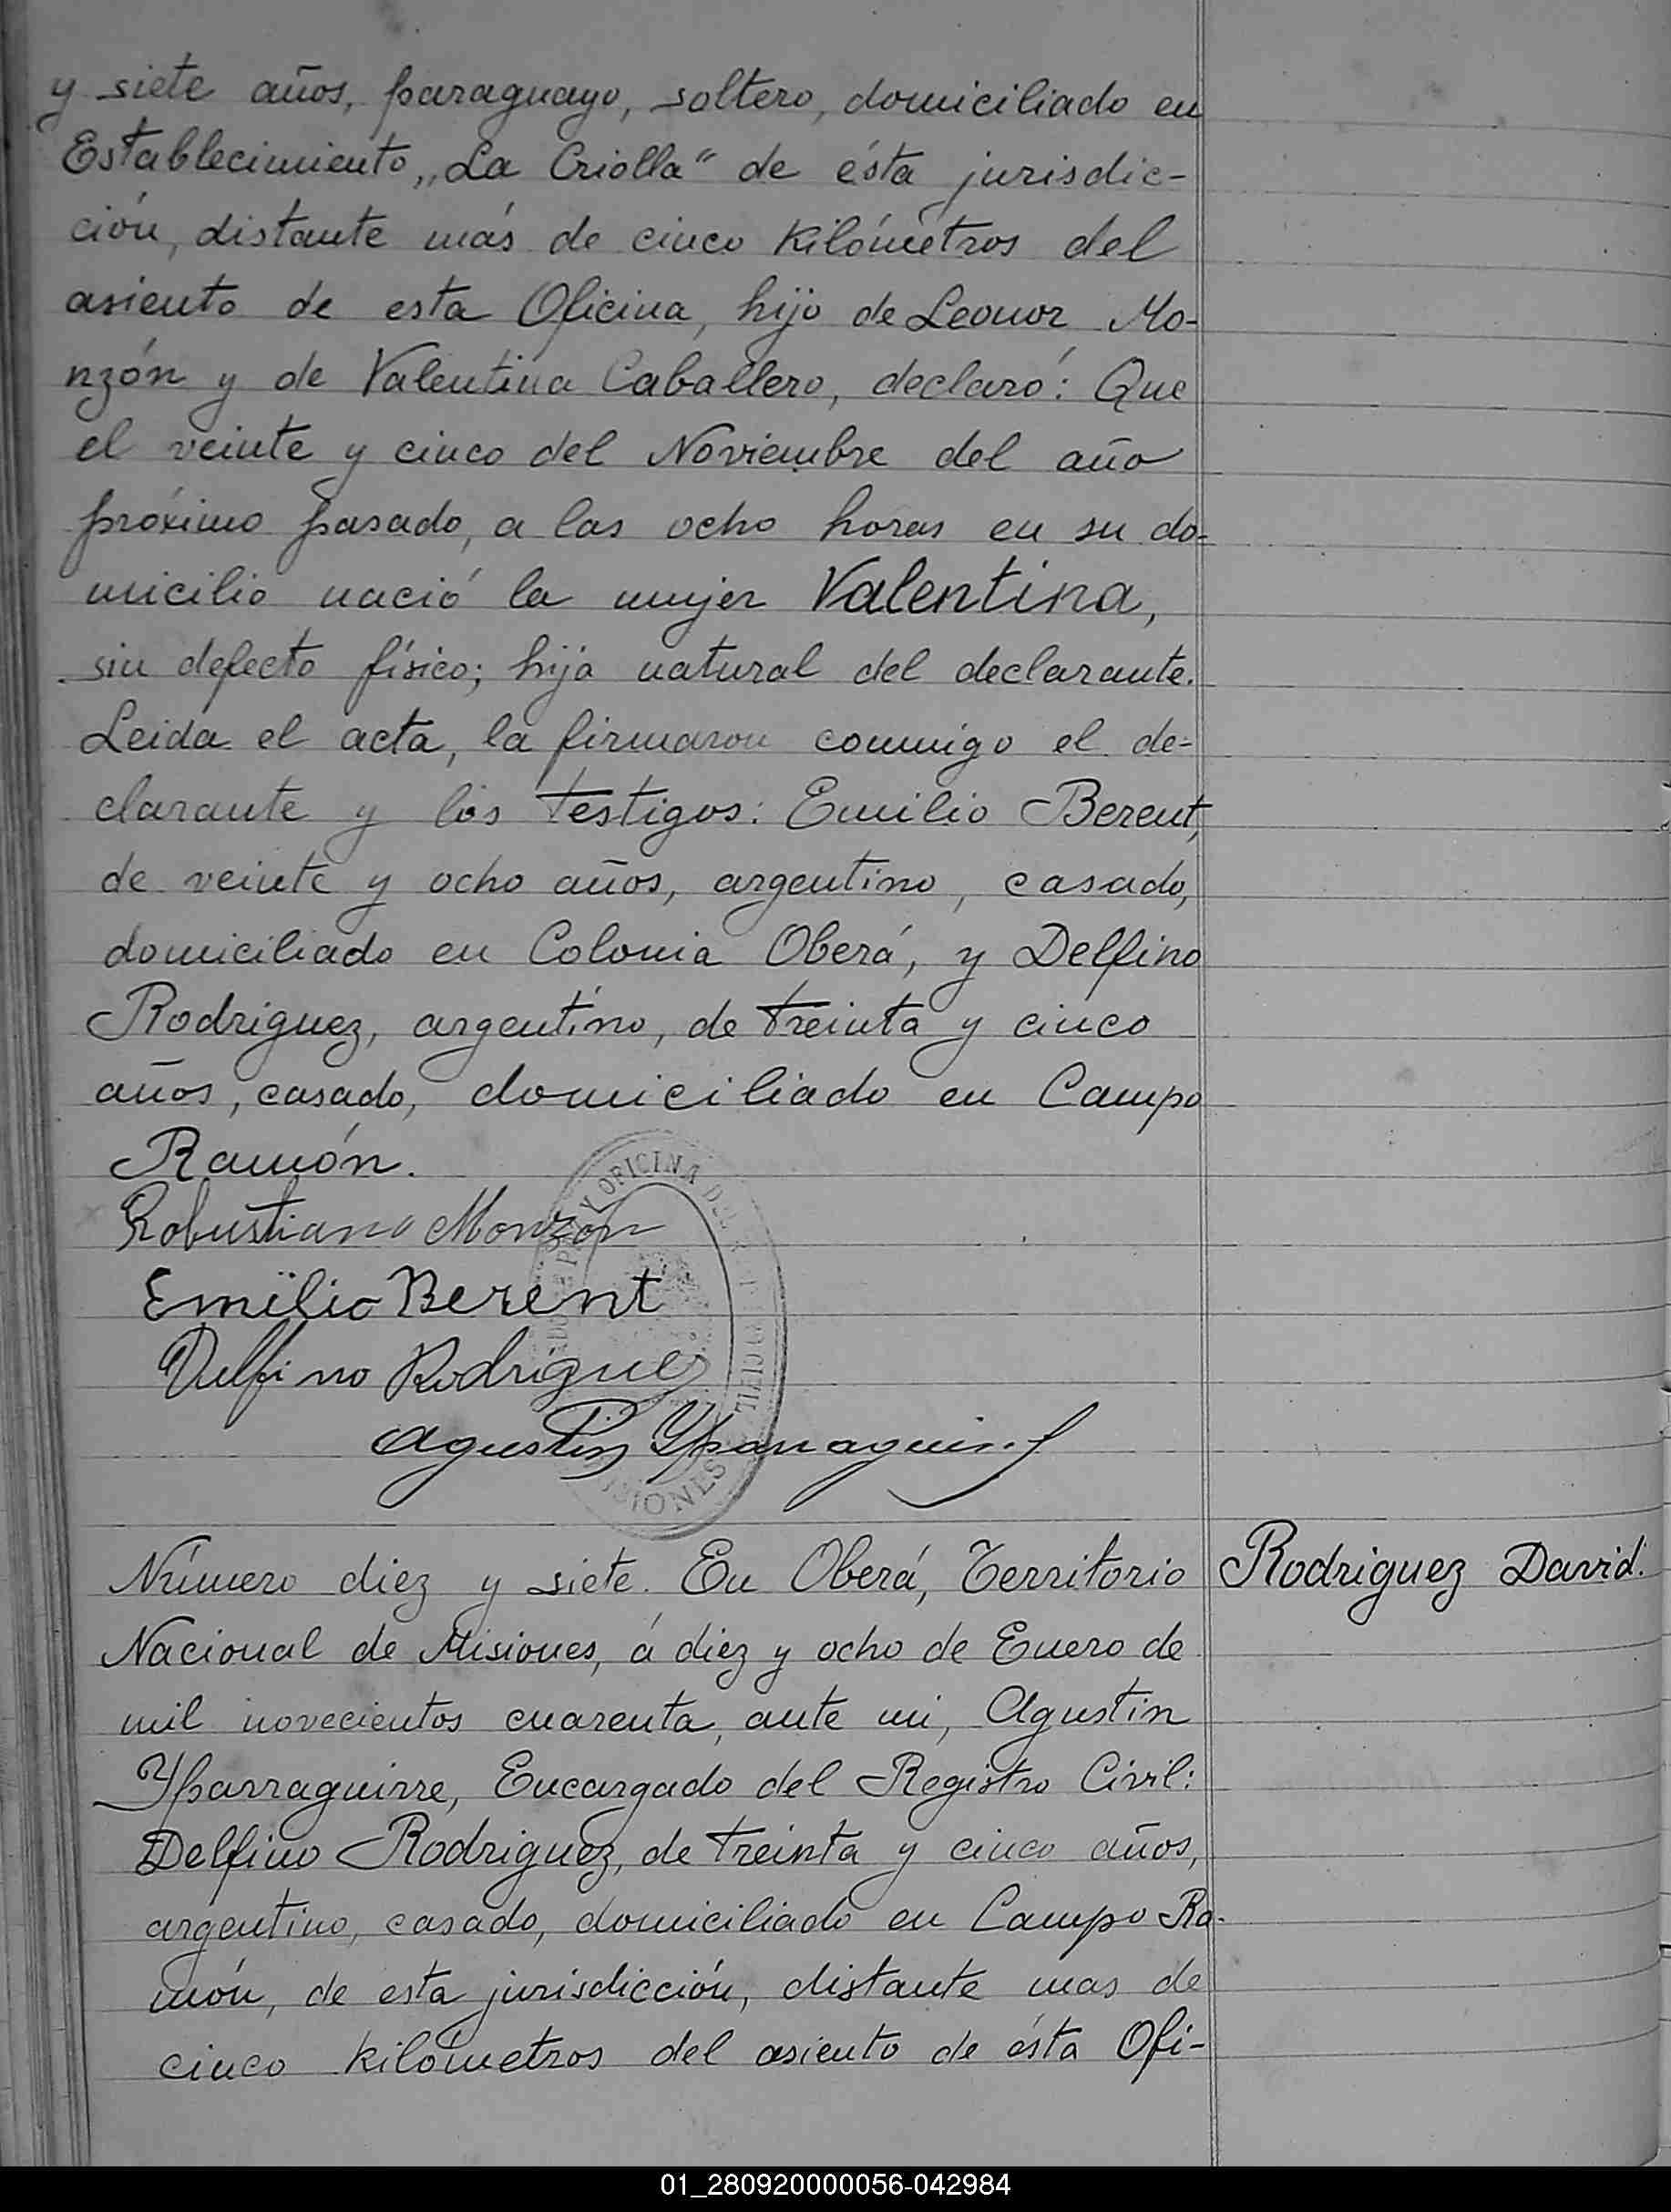 y siete años, paraguayo, soltero, domiciliado en
Establecimiento „La Criolla“ de ésta jurisdic-
ción, distante más de cinco kilómetros del
asiento de esta Oficina, hijo de Leonor Mo-
nzón y de Valentina Caballero, declaró: Que
el veinte y cinco del Noviembre del año
próximo pasado, a las ocho horas en su do-
micilio nació la mujer Valentina,
sin defecto físico; hija natural del declarante.
Leida el acta, la firmaron conmigo el de-
clarante y los testigos: Emilio Berent,
de veinte y ocho años, argentino, casado,
domiciliado en Colonia Oberá, y Delfino
Rodriguez, argentino, de treinta y cinco
años, casado, domiciliado en Campo
Ramón.
Robustiano Monzon
Emilio Berent
Delfino Rodriguez
Agustin Yparraguirre
OFICINA DEL CIVIL MISIONES
Número diez y siete. En Oberá, Territorio
Rodriguez David.
Nacional de Misiones, á diez y ocho de Enero de
mil novecientos cuarenta, ante mi, Agustin
Yparraguirre, Encargado del Registro Civil:
Delfino Rodriguez, de treinta y cinco años,
argentino, casado, domiciliado en Campo Ra-
món, de esta jurisdicción, distante mas de
cinco kilómetros del asiento de ésta Ofi-
01_280920000056-042984